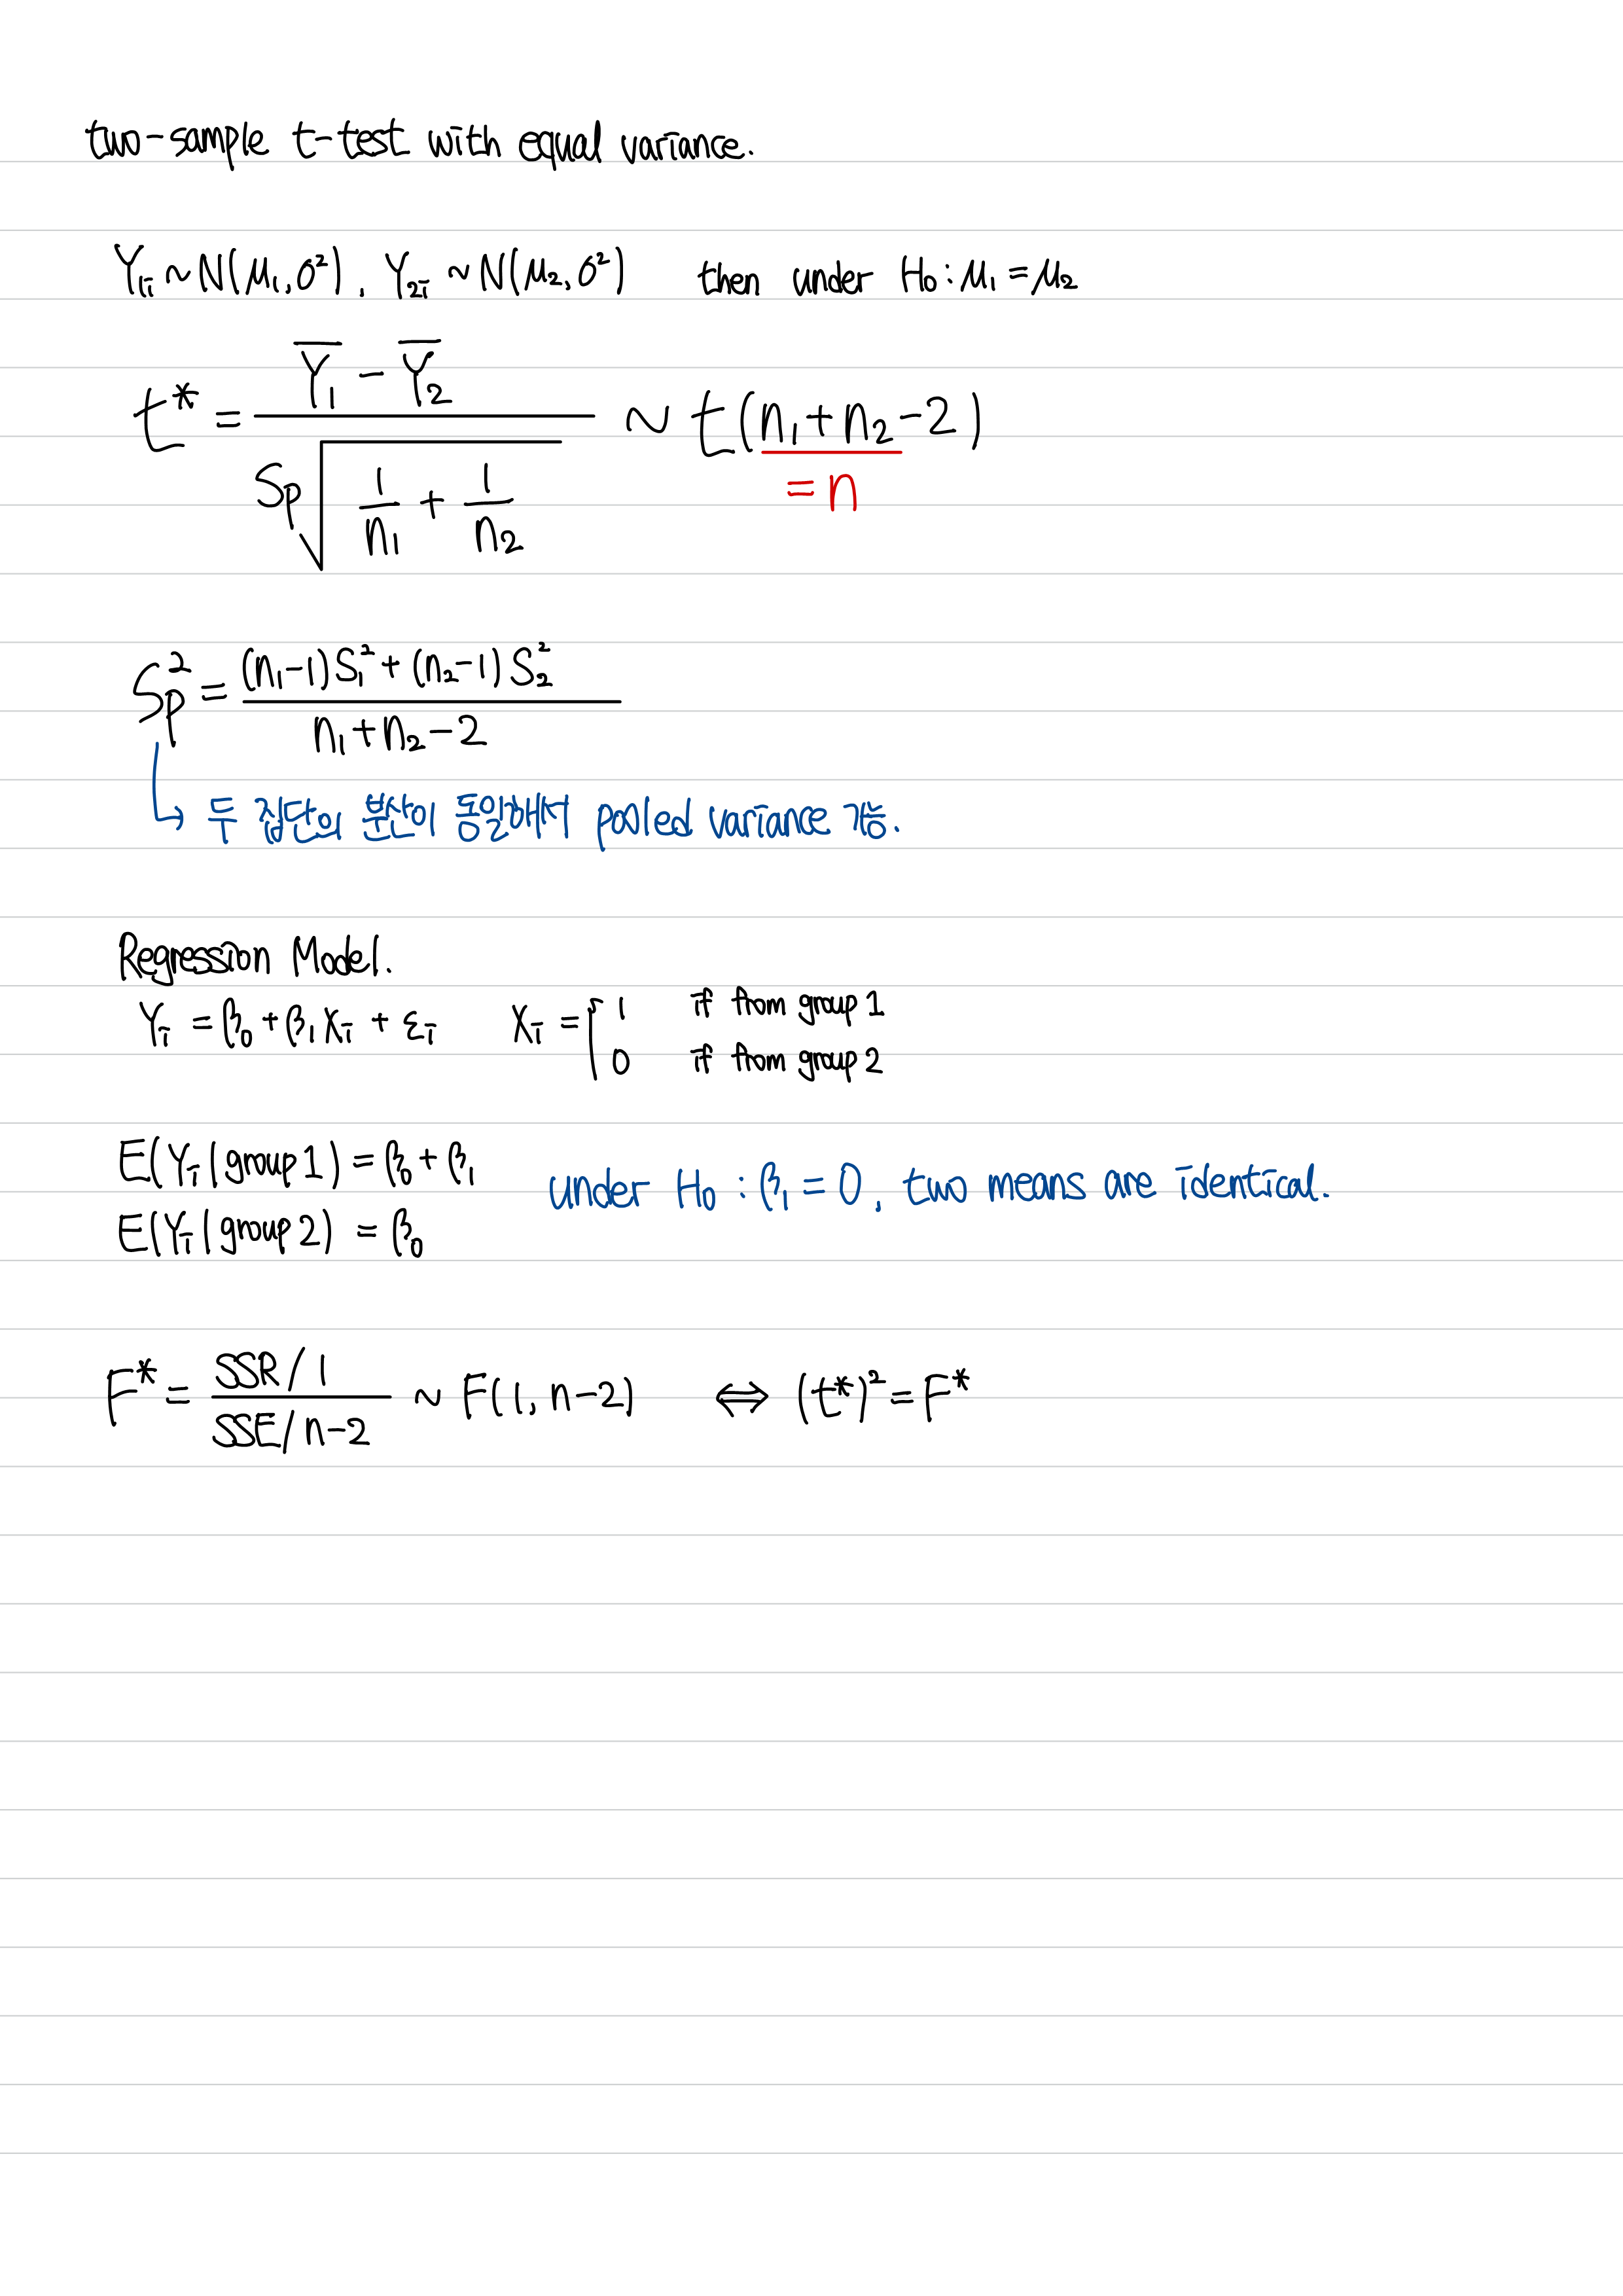 two-sample t-test with equal variance.
Y₁ᵢ ~ N(μ₁, σ²), Y₂ᵢ ~ N(μ₂, σ²) then under H₀ : μ₁ = μ₂
t* = (Y̅₁ - Y̅₂) / (Sp √(1/n₁ + 1/n₂)) ~ t(n₁ + n₂ - 2)
= n
Sp² = ((n₁-1)S₁² + (n₂-1)S₂²) / (n₁ + n₂ - 2)
↳ 두 집단의 분산이 동일해서 pooled variance 가능.
Regression Model.
Yᵢ = β₀ + β₁Xᵢ + εᵢ Xᵢ = { 1 if from group 1
0 if from group 2
E(Yᵢ | group 1) = β₀ + β₁
E(Yᵢ | group 2) = β₀
under H₀ : β₁ = 0, two means are identical.
F* = (SSR / 1) / (SSE / n-2) ~ F(1, n-2) ⇔ (t*)² = F*